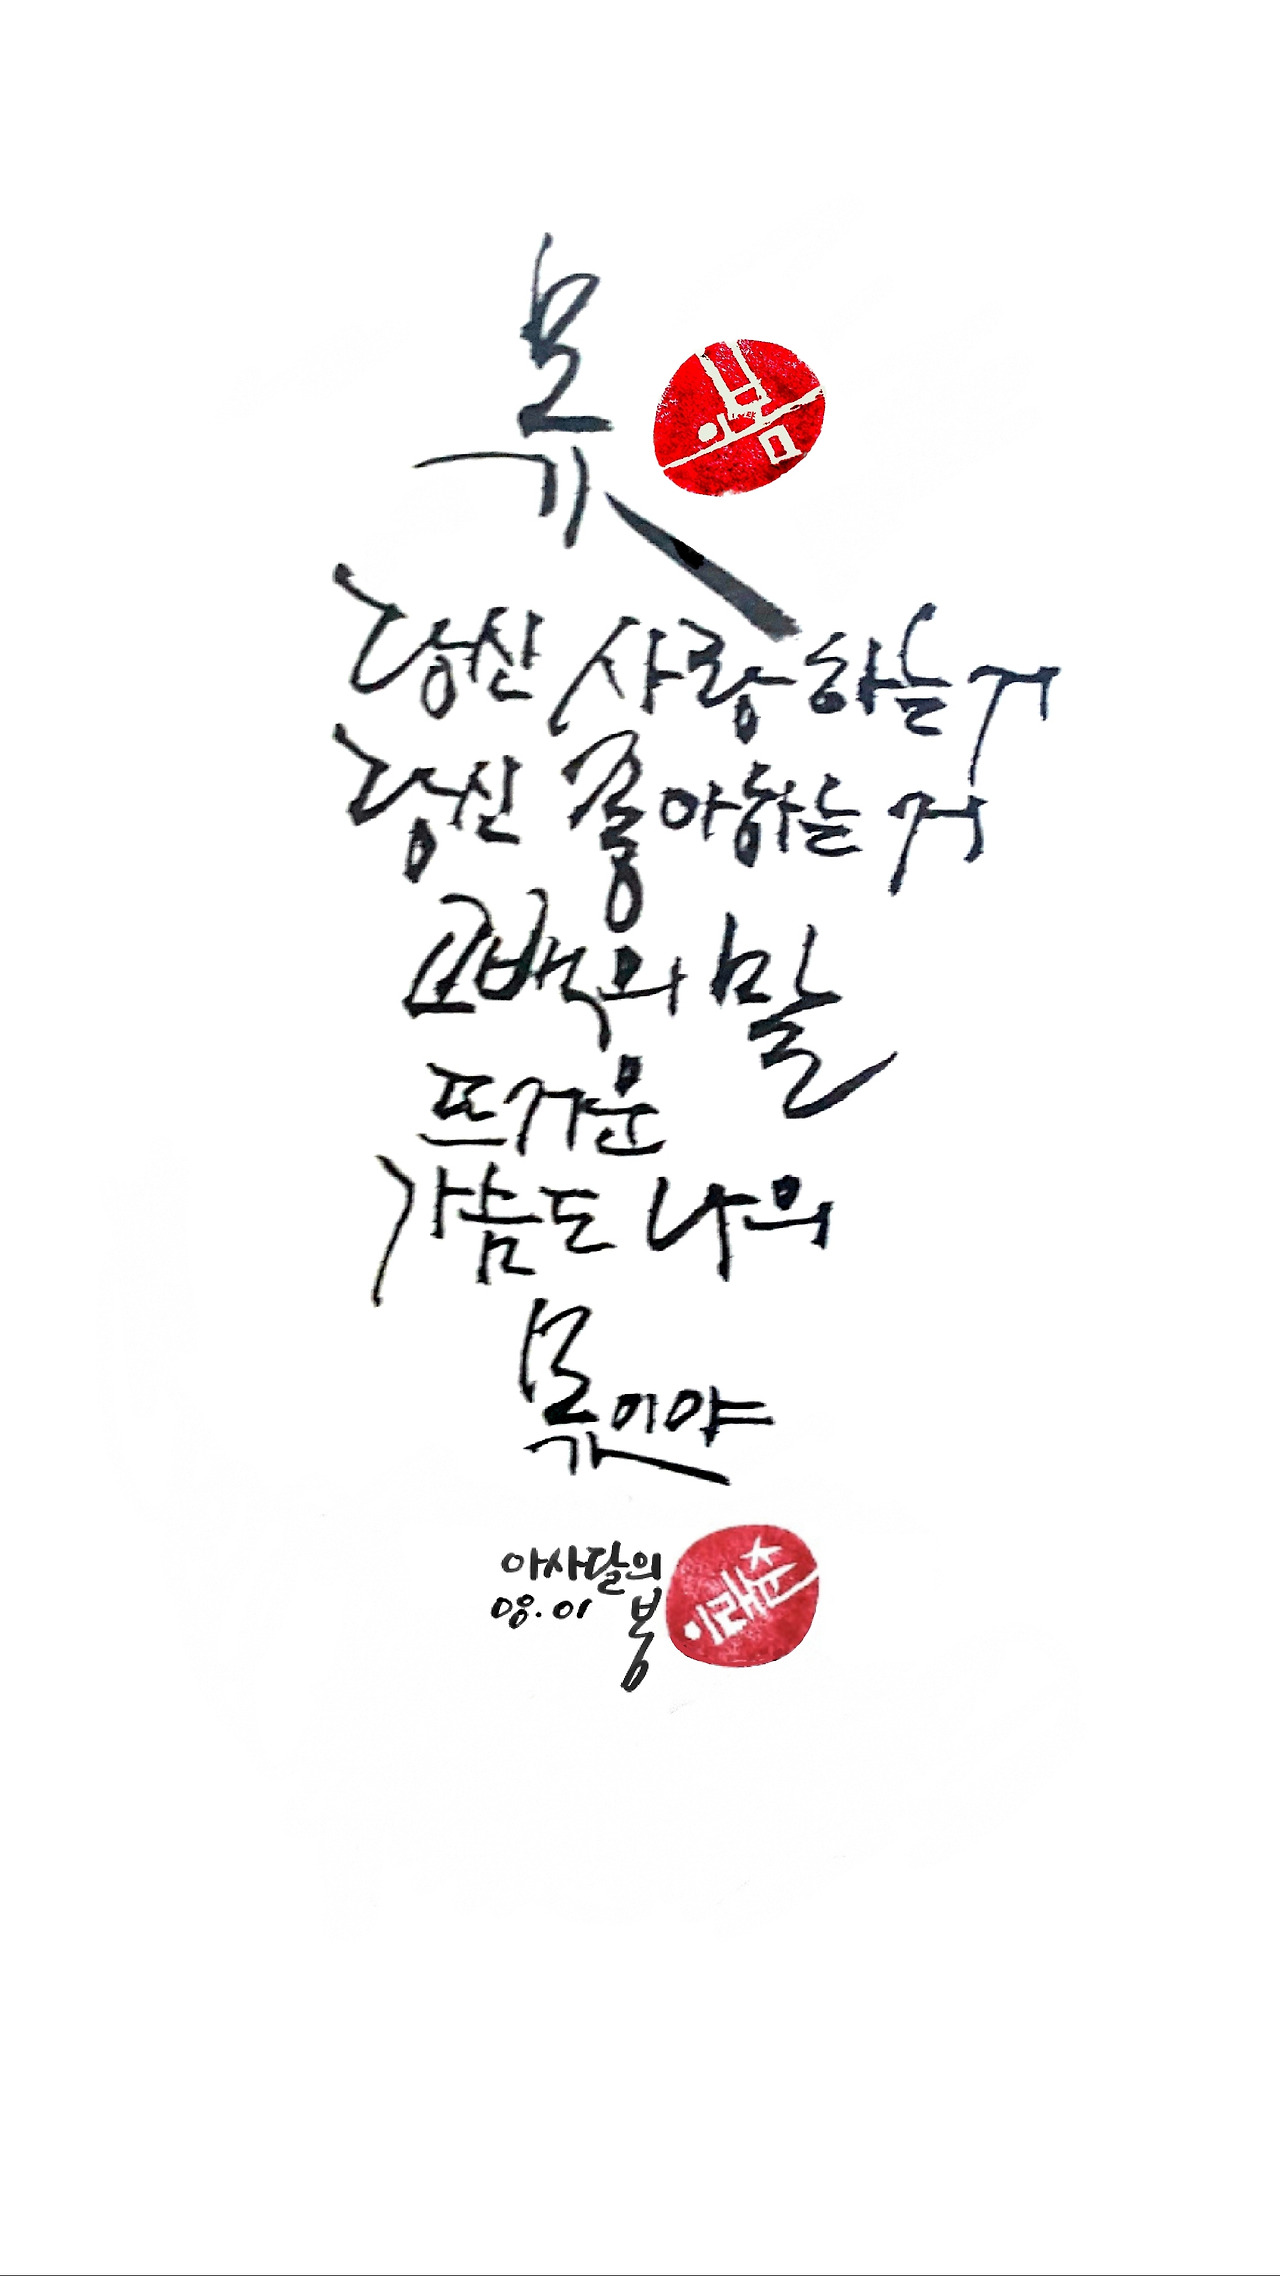 몫
당신 사랑하는 거
당신 좋아하는 거
고백의 말
뜨거운
가슴도 나의
몫이야
아사달의
08.01 봄
이래춘